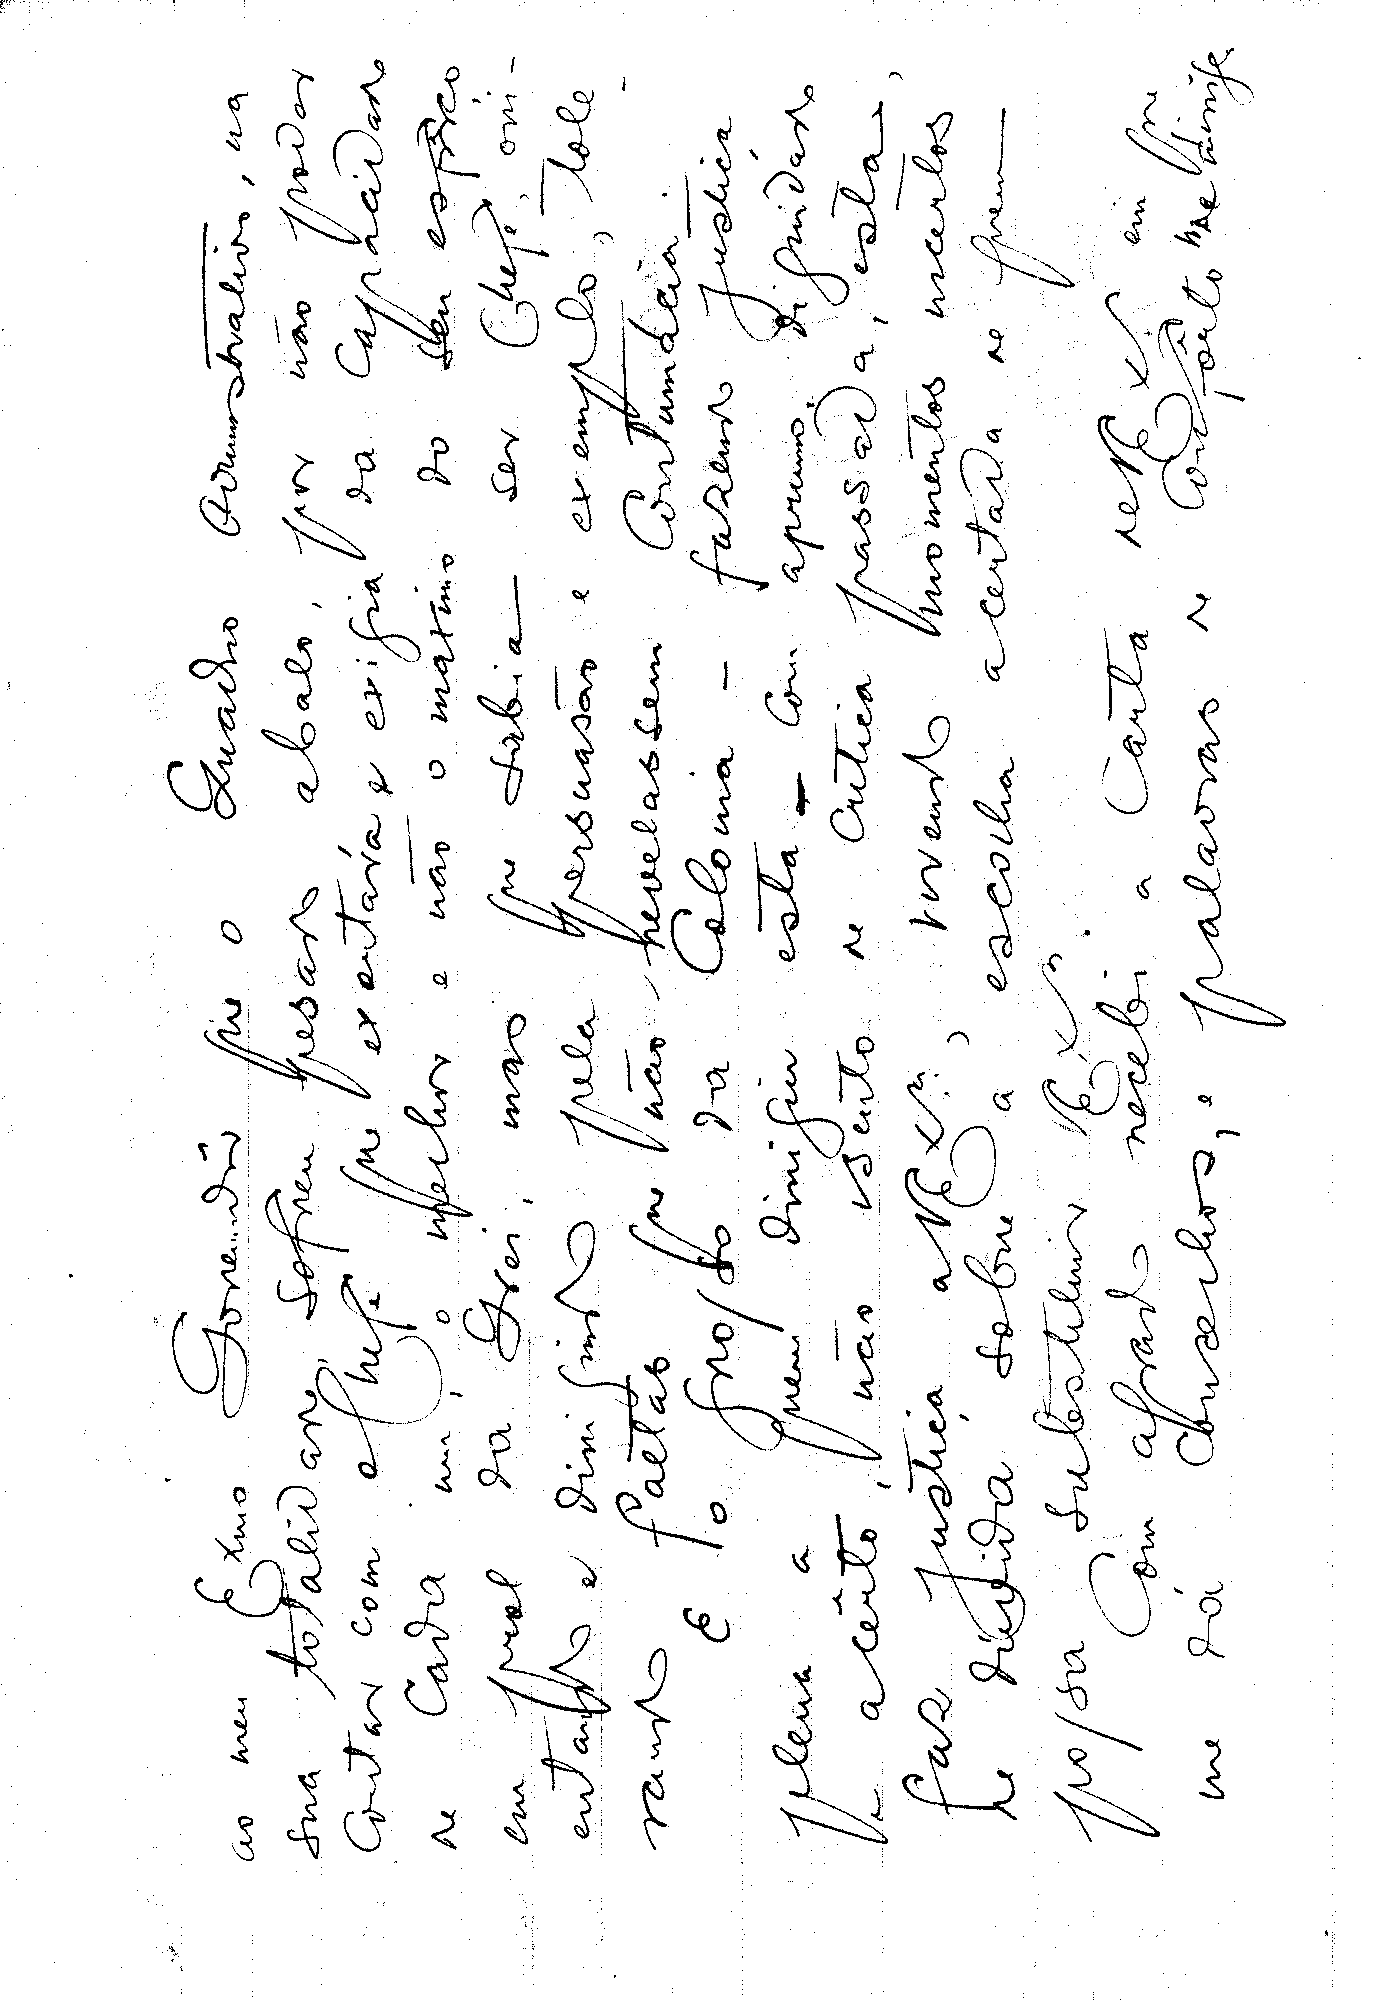 ao meu Exmo Governador que o Quadro Administrativo, na
sua totalidade, sofreu pesado abalo, por não poder
contar com o chefe que exortára e exigia da capacidade
de cada um, o melhor e não o maximo do seu esforço
em prol da Grei, mas que sabia — ser Chefe, ori-
entando e dirigindo pela persuasão e exemplo, tole-
rando faltas que não revelassem contumácia.
E o grosso da Colonia — fazendo justiça
plena a quem dirigiu esta — com aprumo, dignidade
e acêrto, não isento de critica passada, esta,
faz justiça a V. Exª, vivendo momentos incertos
de duvida sobre a escolha acertada de quem
possa substituir V. Exª.
Com agrado recebi a carta de V. Exª em que
me dá conselhos, e palavras de confôrto me dirige